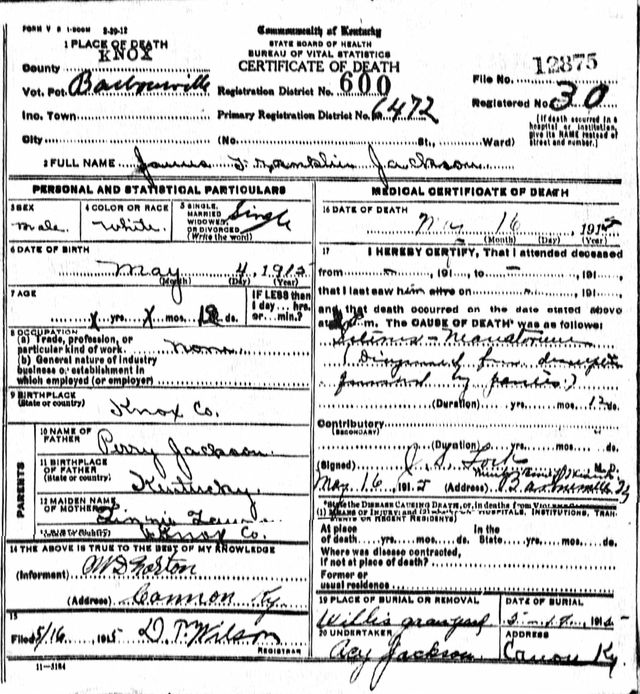 FORM V S 1-500M 3-29-12
Commonwealth of Kentucky
STATE BOARD OF HEALTH
BUREAU OF VITAL STATISTICS
CERTIFICATE OF DEATH
1 PLACE OF DEATH
County KNOX
Vot. Pct. Barbourville
Registration District No. 600
File No. 12875
Ino. Town
Primary Registration District No. 6472
Registered No. 30
City
(No. St., Ward)
[If death occurred in a hospital or institution, give its NAME instead of street and number.]
2 FULL NAME James Franklin Jackson
PERSONAL AND STATISTICAL PARTICULARS
3 SEX Male
4 COLOR OR RACE White
5 SINGLE, MARRIED WIDOWED, OR DIVORCED (Write the word) Single
6 DATE OF BIRTH
May 4, 1915
(Month) (Day) (Year)
7 AGE
x yrs. x mos. 12 ds.
IF LESS than 1 day... hrs. or... min.?
8 OCCUPATION
(a) Trade, profession, or particular kind of work none
(b) General nature of industry business or establishment in which employed (or employer)
9 BIRTHPLACE (State or country)
Knox Co.
PARENTS
10 NAME OF FATHER Perry Jackson
11 BIRTHPLACE OF FATHER (State or country) Kentucky
12 MAIDEN NAME OF MOTHER
Knox Co.
14 THE ABOVE IS TRUE TO THE BEST OF MY KNOWLEDGE
(Informent)
(Address) Cannon Ky.
15
Filed 5/16 1915 D. T. Wilson
REGISTRAR
11-3184
MEDICAL CERTIFICATE OF DEATH
16 DATE OF DEATH
May 16, 1915
(Month) (Day) (Year)
17 I HEREBY CERTIFY, That I attended deceased
from — , 191 to — 191 ,
that I last saw him alive on 191 ,
and that death occurred on the date stated above
at m. The CAUSE OF DEATH was as follows:
(Diagnosed from
furnished by parties)
(Duration) yrs. mos. 12 ds.
Contributory
(SECONDARY)
(Duration) yrs. mos. ds.
(Signed) M. D.
May 16, 1915 (Address) Barbourville Ky
*State the DISEASE CAUSING DEATH, or, in deaths from
HOSPITALS, INSTITUTIONS, TRANSIENTS OR RECENT RESIDENTS)
At place of death yrs. mos. ds. In the State yrs. mos. ds.
Where was disease contracted, if not at place of death?
Former or usual residence
19 PLACE OF BURIAL OR REMOVAL
Willis graveyard
DATE OF BURIAL
1915
20 UNDERTAKER
Acy Jackson
ADDRESS
Cannon Ky.